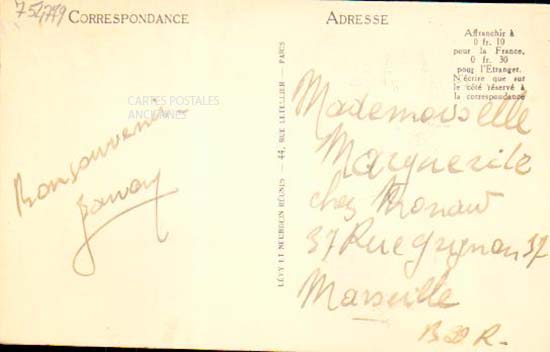 CORRESPONDANCE
ADRESSE
Affranchir à
0 fr. 10
pour la France,
0 fr. 30
pour l'Etranger.
N'écrire que sur
le côté réservé à
la correspondance
CARTES POSTALES
ANCIENNES
Bon souvenir
LÉVY ET NEURDEIN RÉUNIS — 44, RUE LETELLIER — PARIS
Mademoiselle
Marguerite
chez
37 Rue Grignan 37
Marseille
B D R.